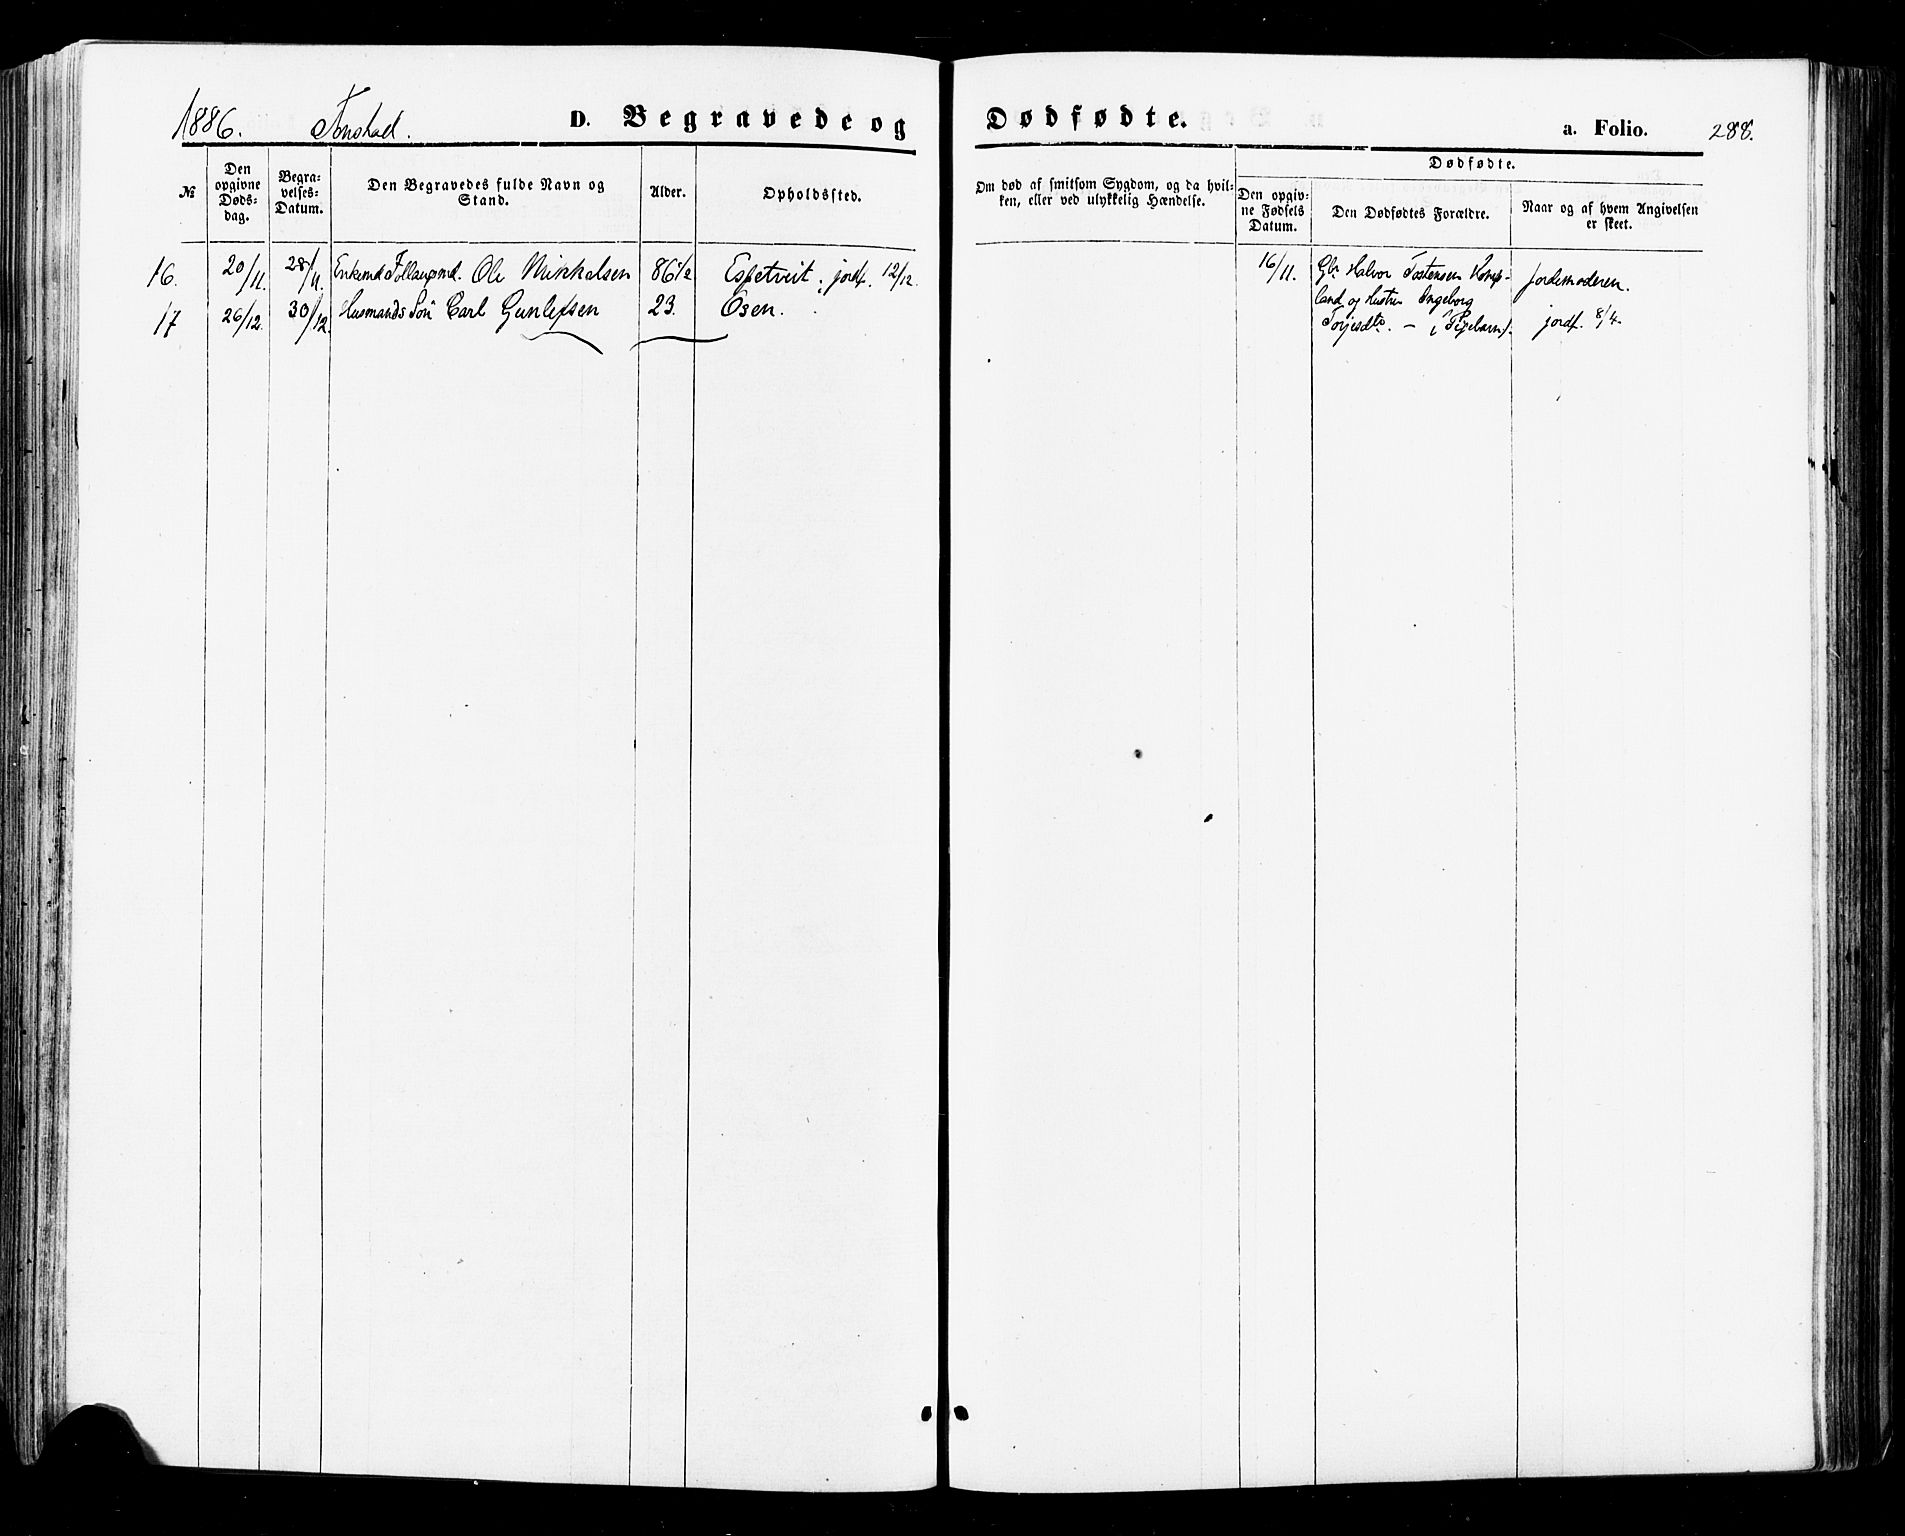 1886. Tonstad. D. Begravede og Dødfødte. a. Folio. 288.
№
Den opgivne Døds-dag.
Begra-velses-Datum.
Den Begravedes fulde Navn og Stand.
Alder.
Opholdssted.
Om død af smitsom Sygdom, og da hvil-
ken, eller ved ulykkelig Hændelse.
Dødfødte.
Den opgiv-
ne Fødsels
Datum.
Den Dødfødtes Forældre.
Naar og af hvem Angivelsen
er skeet.
16. 20/11. 28/11. Enkemd. Ole Mikkelsen 86 1/2 Espetveit; jordf. 12/12.
17 26/12. 30/12. Husmands Søn Carl Gunleksen 23. Osen.
16/11. Gbr. Halvor Tostensen
land og Hustru Ingeborg
Torjesdtr. — Pigebarn.
Jordemoderen.
jordf. 8/4.